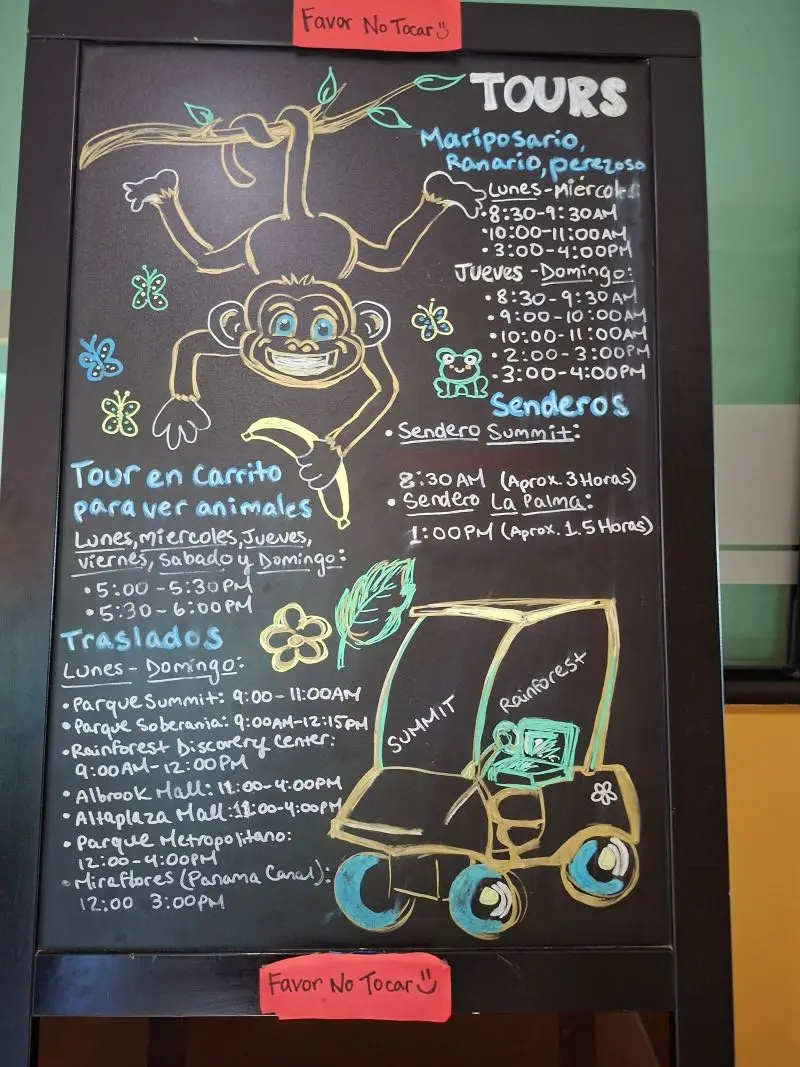 Favor No Tocar
TOURS
Mariposario,
Ranario, perezoso
Lunes - Miércoles
• 8:30 - 9:30 AM
• 10:00 - 11:00 AM
• 3:00 - 4:00 PM
Jueves - Domingo:
• 8:30 - 9:30 AM
• 9:00 - 10:00 AM
• 10:00 - 11:00 AM
• 2:00 - 3:00 PM
• 3:00 - 4:00 PM
Senderos
• Sendero Summit:
8:30 AM (Aprox. 3 Horas)
• Sendero La Palma:
1:00 PM (Aprox. 1.5 Horas)
Tour en Carrito
para ver animales
Lunes, miercoles, Jueves,
viernes, Sabado y Domingo:
• 5:00 - 5:30 PM
• 5:30 - 6:00 PM
Traslados
Lunes - Domingo:
• Parque Summit: 9:00 - 11:00 AM
• Parque Soberania: 9:00 AM - 12:15 PM
• Rainforest Discovery Center:
9:00 AM - 12:00 PM
• Albrook Mall: 11:00 - 4:00 PM
• Altaplaza Mall: 11:00 - 4:00 PM
• Parque Metropolitano:
12:00 - 4:00 PM
• Miraflores (Panama Canal):
12:00 3:00 PM
SUMMIT
Rainforest
Favor No Tocar